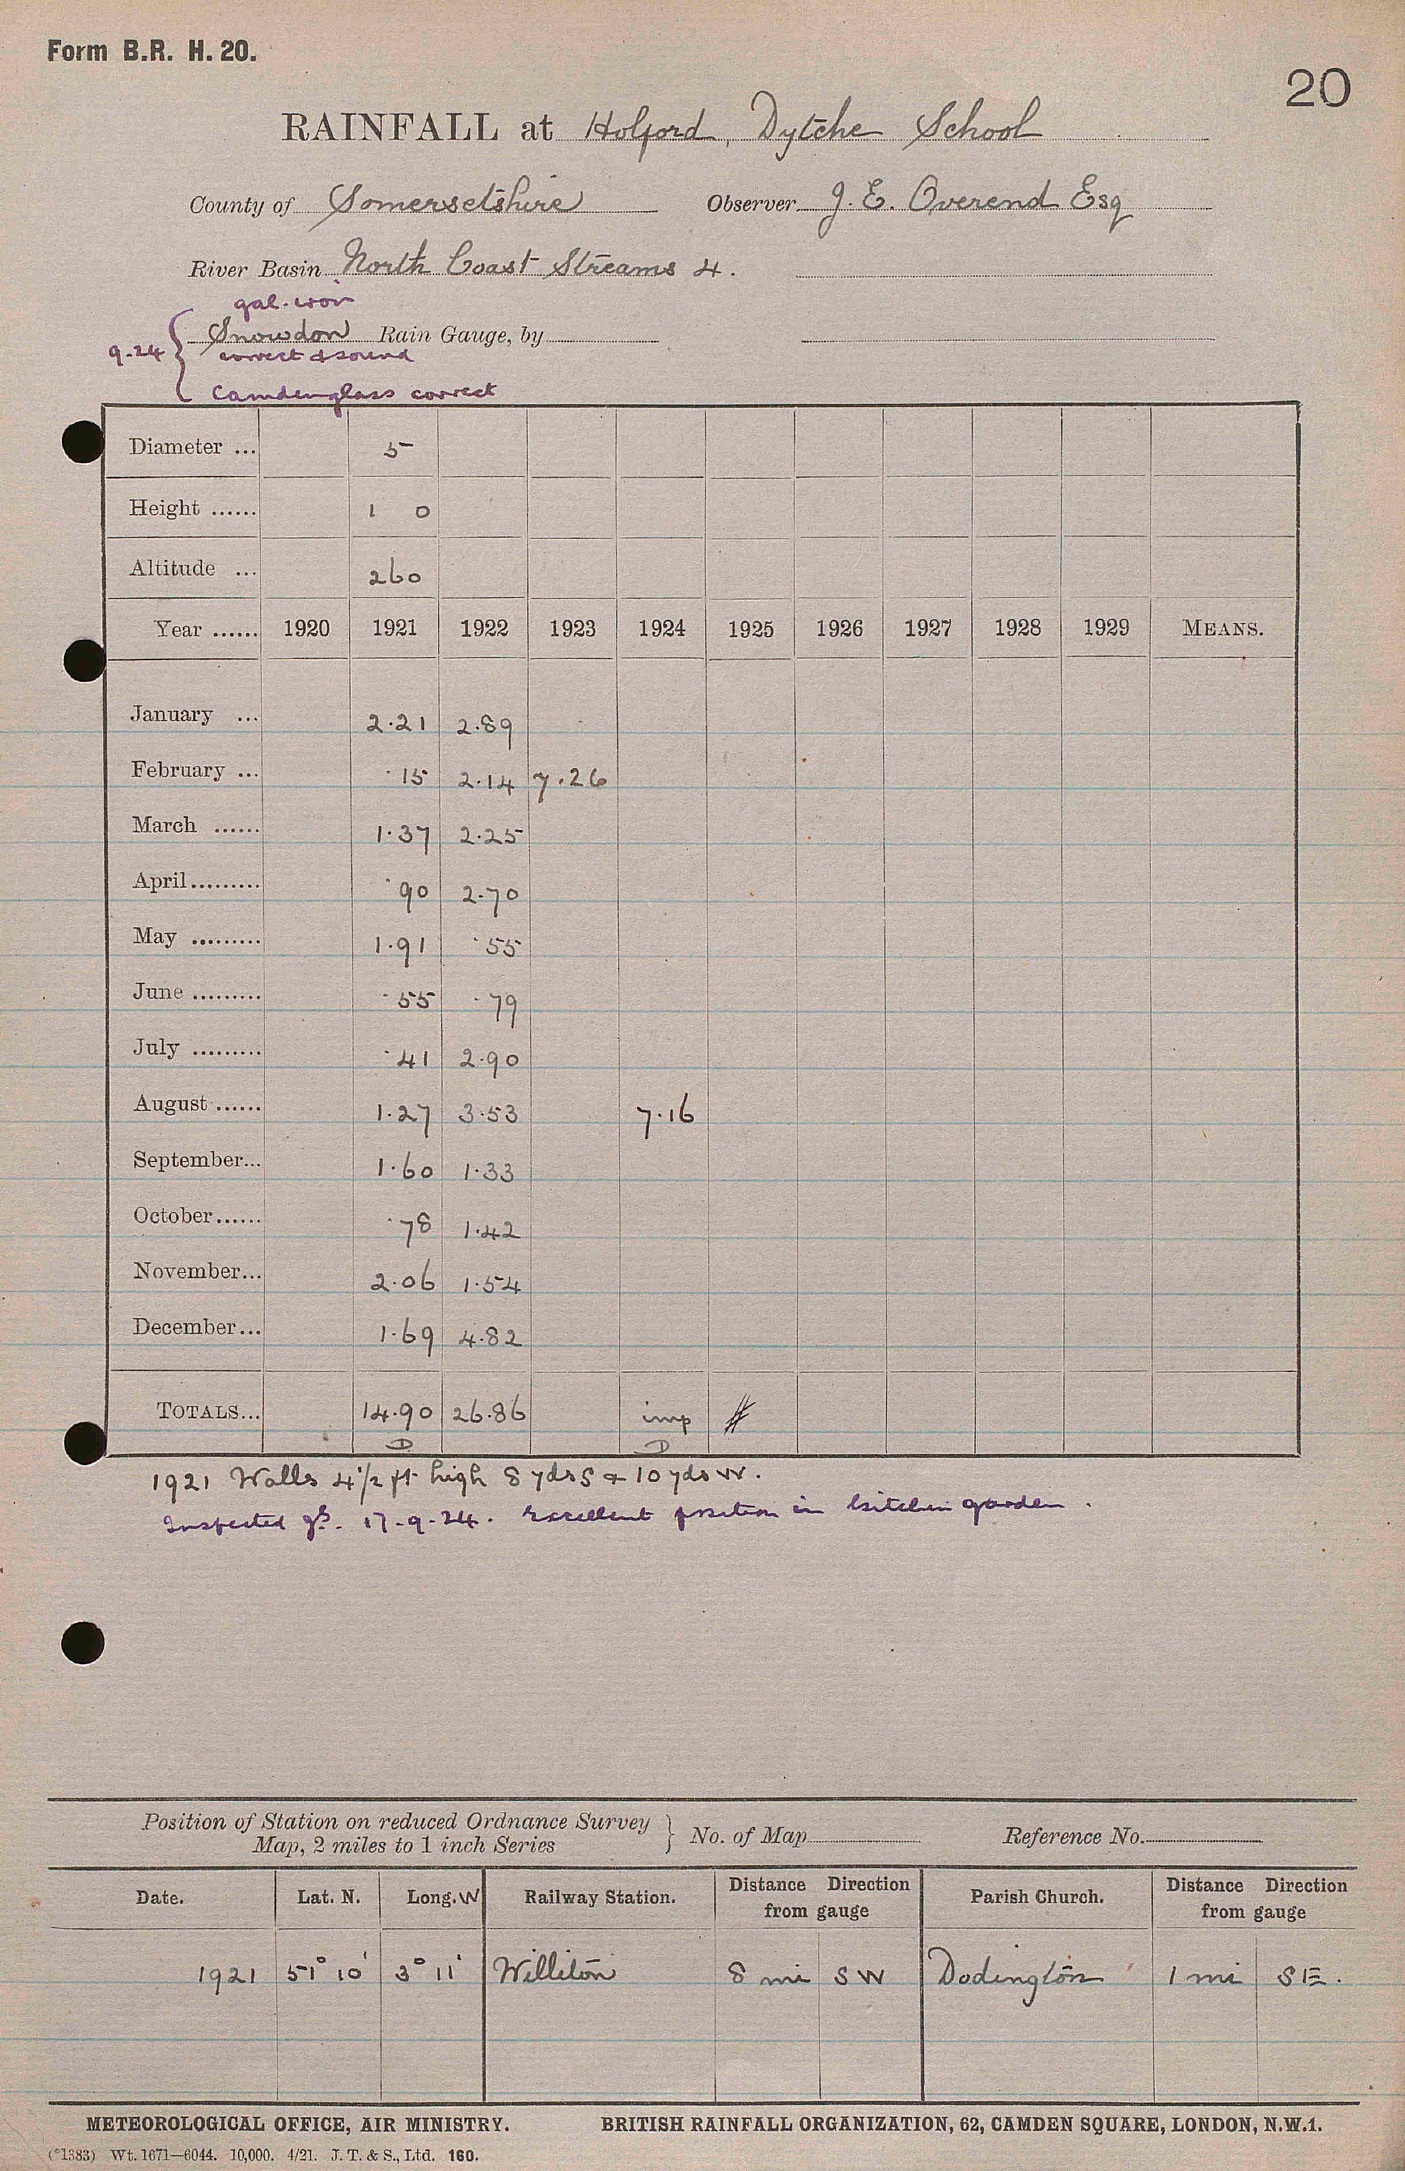 Form B.R. H. 20.
20
RAINFALL at Holford, Dytche School
County of Somersetshire Observer J. E. Overend Esq
River Basin North Coast Streams 4.
gal. iron
9-24 { Snowdon Rain Gauge, by
correct & sound
Camden glass correct
Diameter ... 5
Height ...... 1 0
Altitude ... 260
Year ...... 1920 1921 1922 1923 1924 1925 1926 1927 1928 1929 MEANS.
January ... 2.21 2.89
February ... .15 2.14 7.26
March ...... 1.37 2.25
April ......... .90 2.70
May ......... 1.91 .55
June ......... .55 .79
July ......... .41 2.90
August ...... 1.27 3.53 7.16
September... 1.60 1.33
October...... .78 1.42
November... 2.06 1.54
December... 1.69 4.82
TOTALS... 14.90 26.86 imp
D D
1921 Walls 4 1/2 ft high 8 yds S & 10 yds W.
Inspected 17-9-24. Excellent position in kitchen garden.
Position of Station on reduced Ordnance Survey
Map, 2 miles to 1 inch Series } No. of Map Reference No.
Date. Lat. N. Long. W Railway Station. Distance Direction from gauge Parish Church. Distance Direction from gauge
1921 51° 10' 3° 11' Williton 8 mi SW Dodington 1 mi SE.
METEOROLOGICAL OFFICE, AIR MINISTRY. BRITISH RAINFALL ORGANIZATION, 62, CAMDEN SQUARE, LONDON, N.W.1.
(*1383) Wt. 1671—6044. 10,000. 4/21. J. T. & S., Ltd. 160.